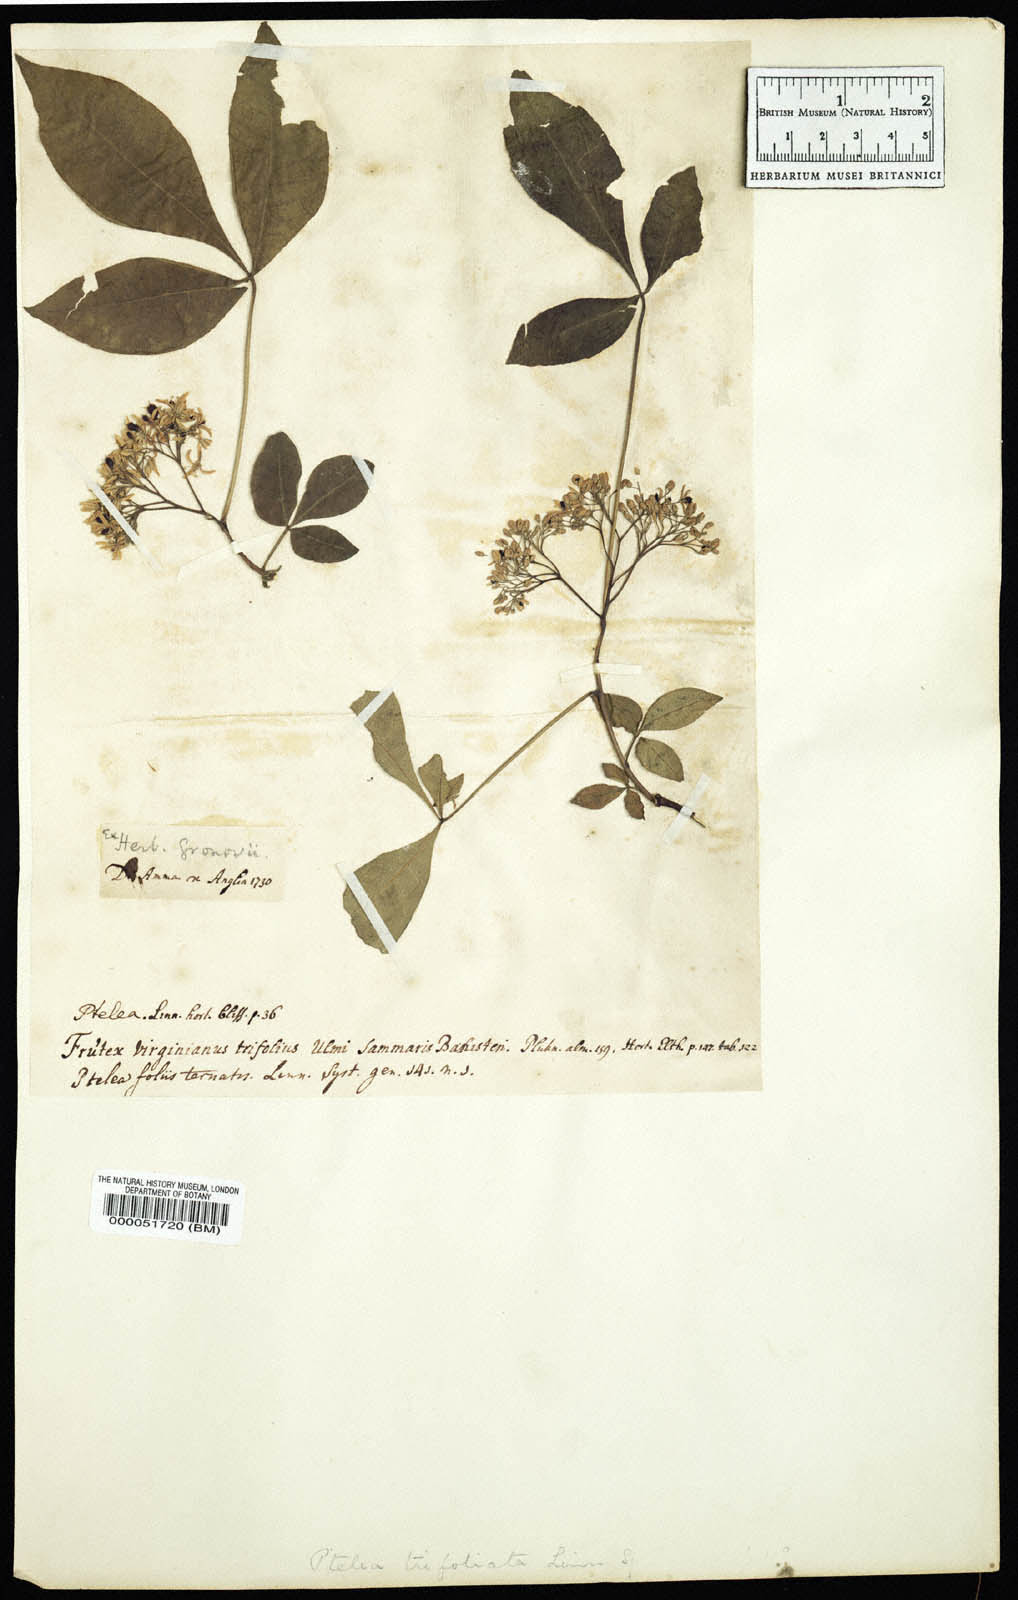 1 2
BRITISH MUSEUM (NATURAL HISTORY)
1 2 3 4 5
HERBARIUM MUSEI BRITANNICI
Ex Herb. Gronovii.
Amma ex Anglia 1730
Ptelea. Linn. hort. Cliff. p. 36
Frutex Virginianus trifolius Ulmi Sammaris Banisteri. Plukn. alm. 159. Hort. Elth. p. 147. tab. 122
Ptelea foliis ternatis. Linn. Syst. gen. 545. n. 5.
THE NATURAL HISTORY MUSEUM, LONDON
DEPARTMENT OF BOTANY
000051720 (BM)
Ptelea trifoliata Linn